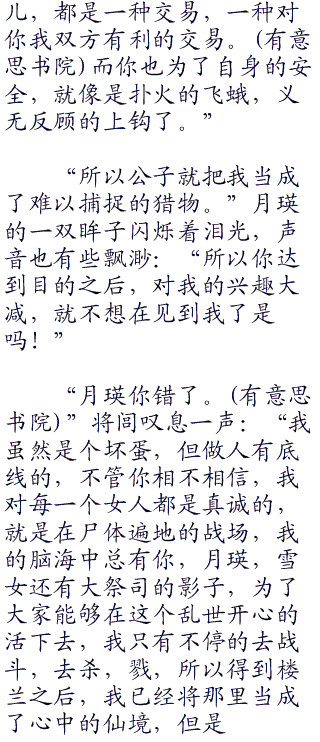 儿，都是一种交易，一种对
你我双方有利的交易。(有意
思书院)而你也为了自身的安
全，就像是扑火的飞蛾，义
无反顾的上钩了。”
“所以公子就把我当成
了难以捕捉的猎物。”月瑛
的一双眸子闪烁着泪光，声
音也有些飘渺：“所以你达
到目的之后，对我的兴趣大
减，就不想在见到我了是
吗！”
“月瑛你错了。(有意思
书院)”将闾叹息一声：“我
虽然是个坏蛋，但做人有底
线的，不管你相不相信，我
对每一个女人都是真诚的，
就是在尸体遍地的战场，我
的脑海中总有你，月瑛，雪
女还有大祭司的影子，为了
大家能够在这个乱世开心的
活下去，我只有不停的去战
斗，去杀，戮，所以得到楼
兰之后，我已经将那里当成
了心中的仙境，但是